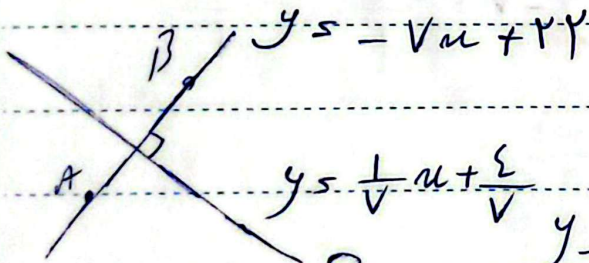 B
y = -۷x + ۲۲
A
y = \frac{۱}{۷}x + \frac{۴}{۷}
y